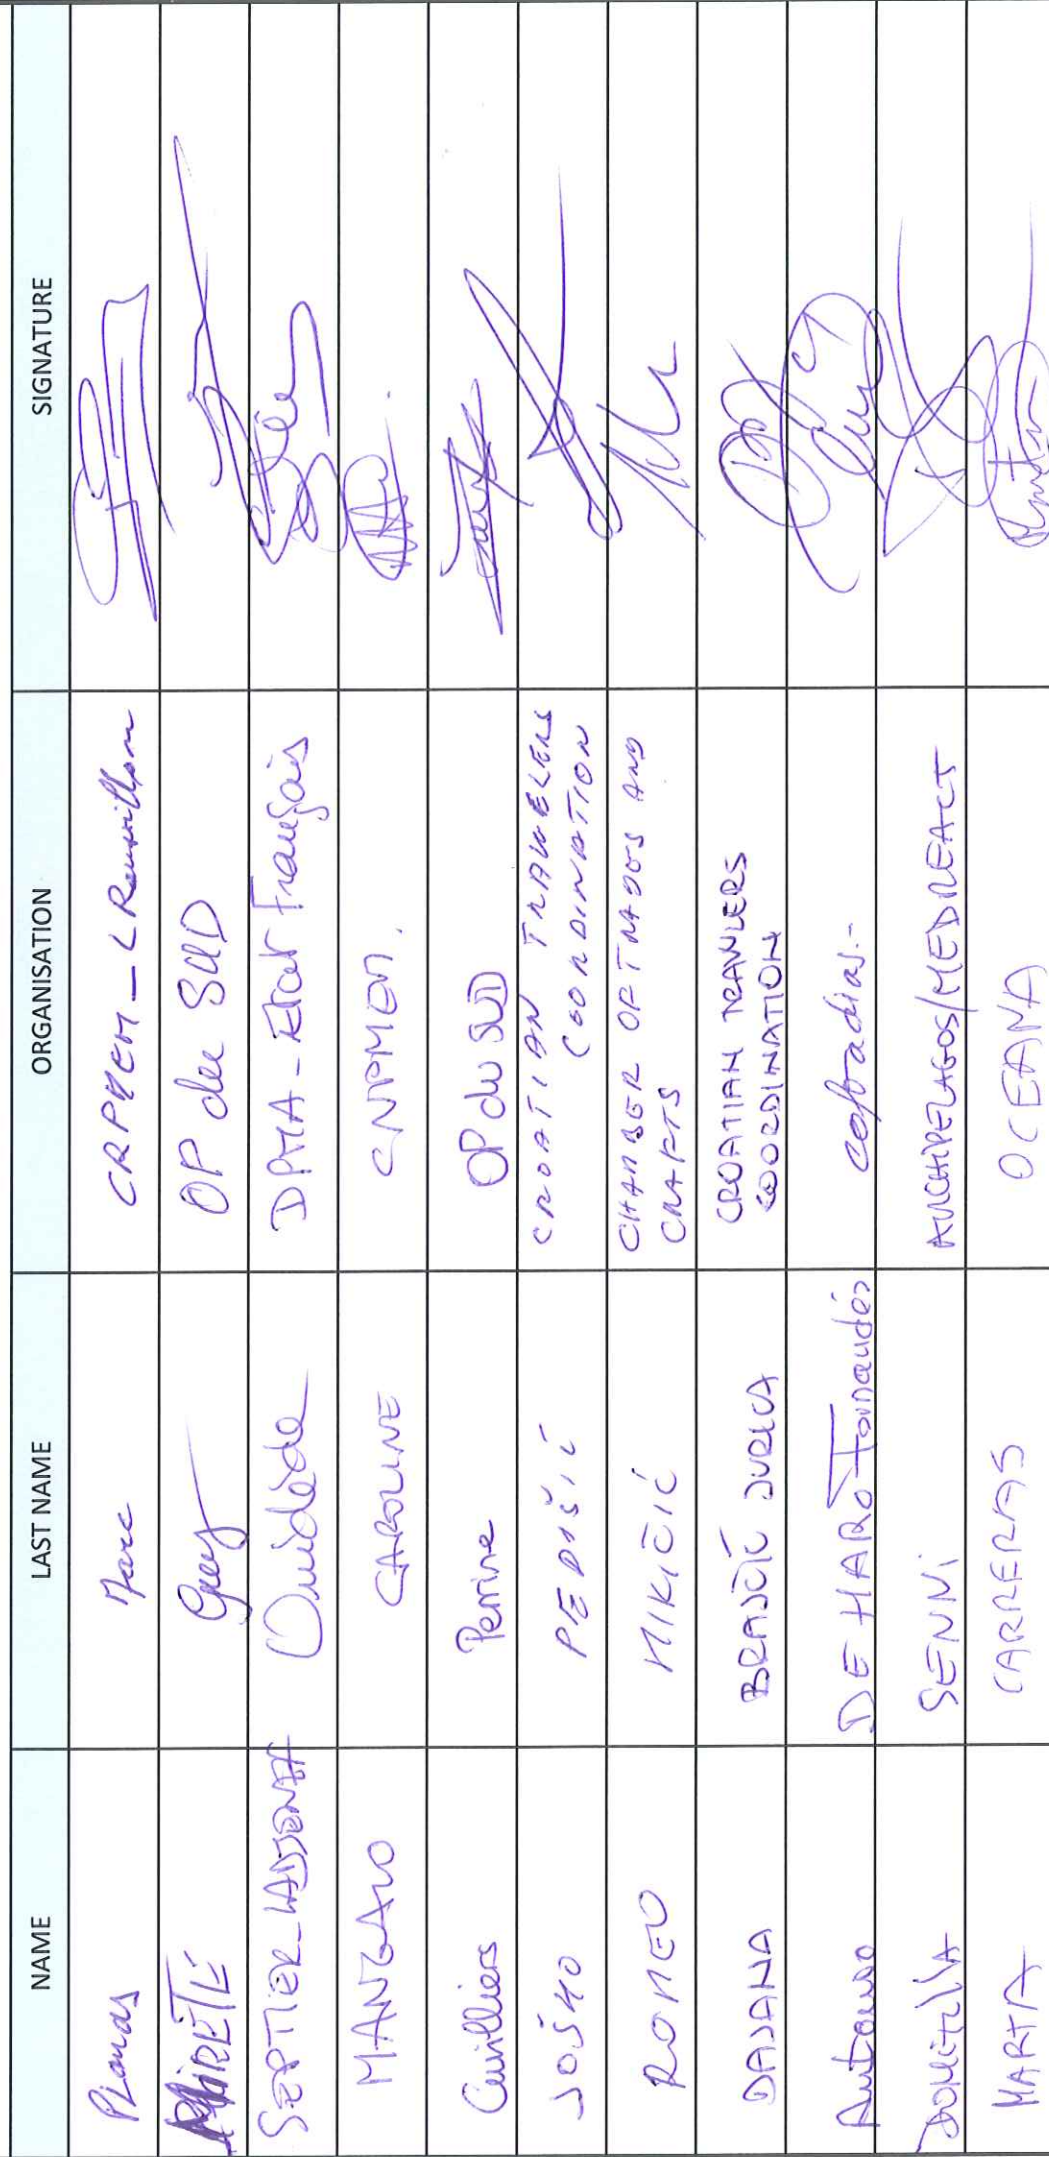 NAME LAST NAME ORGANISATION SIGNATURE
Planas Marc CRPMEM - LRoussillon
MIRETE Guy OP du SUD
SEPTIER_LADSONET Ouidède DPMA - Etat Français
MANGANO CAROLINE CNPMEM.
Cuvilliers Perrine OP du SUD
JOŠKO PEDIŠIĆ CROATIAN TRAWELERS
COORDINATION
ROMEO MIKIČIĆ CHAMBER OF TRADES AND
CRAFTS
DAJANA BRAJČIĆ JURICA CROATIAN TRAWLERS
COORDINATION
Antonio DE HARO Fernandés cofradias.-
DOMITILLA SENNI ARCHIPELAGOS/MEDREACT
MARTA CARRERAS OCEANA